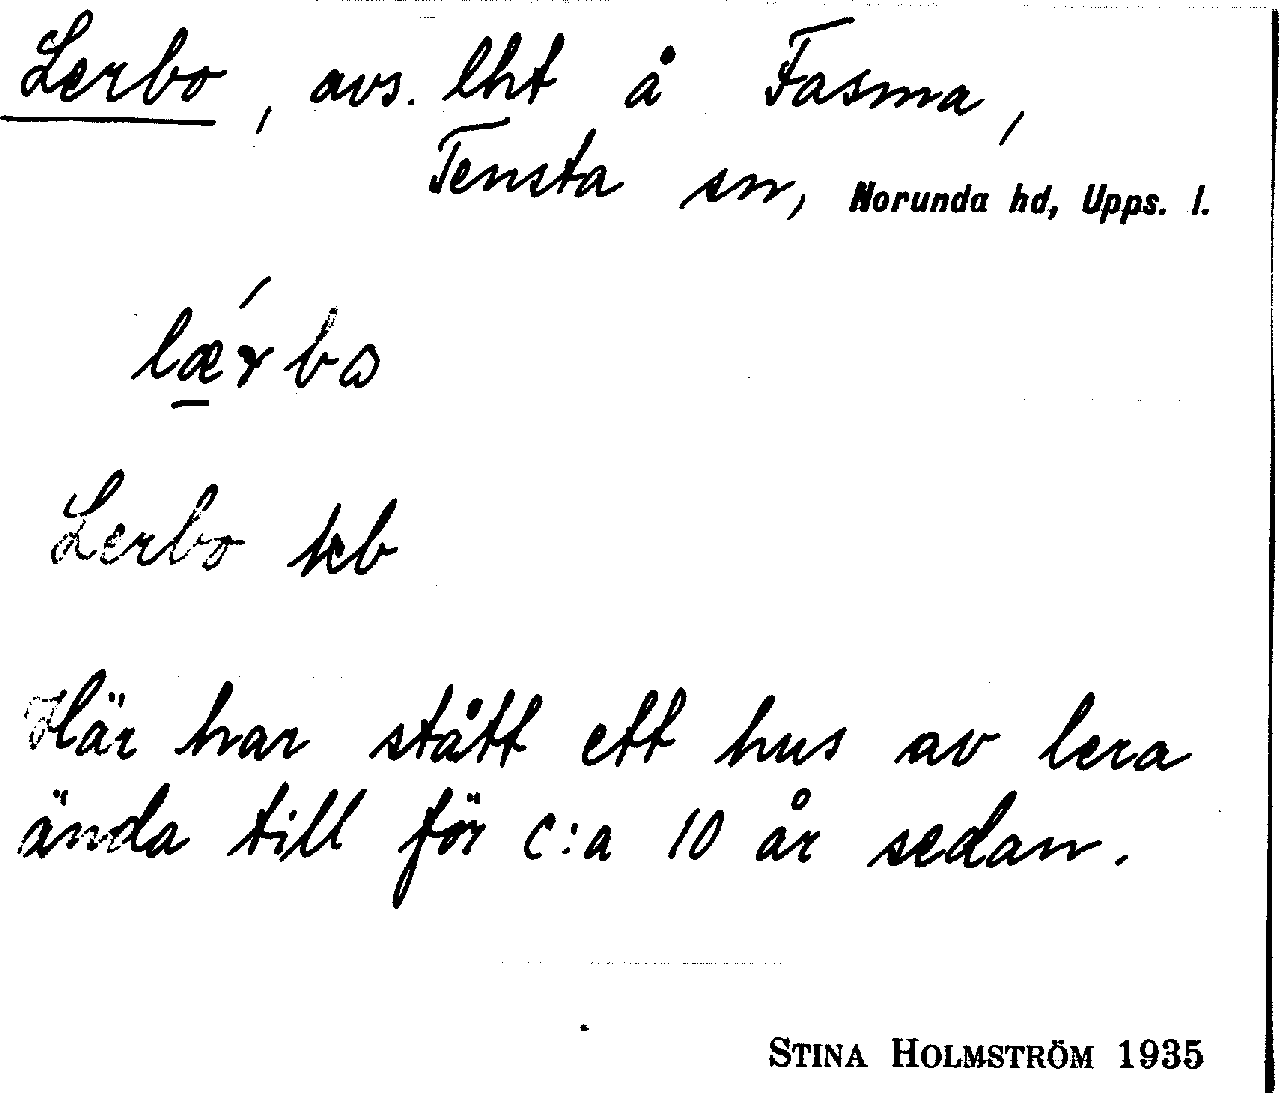 Lerbo, avs. lht å Fasma,
Tensta sn, Norunda hd, Upps. l.
lǽrbo
Lerbo kb
Här har stått ett hus av lera
ända till för c:a 10 år sedan.
STINA HOLMSTRÖM 1935